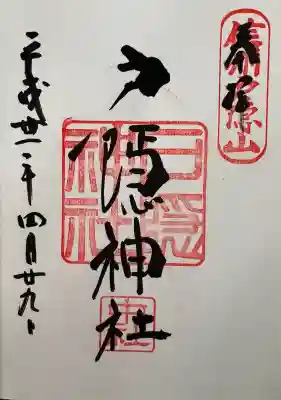 奉拝
信州戸隠山
戸隠神社
平成廿一年四月廿九日